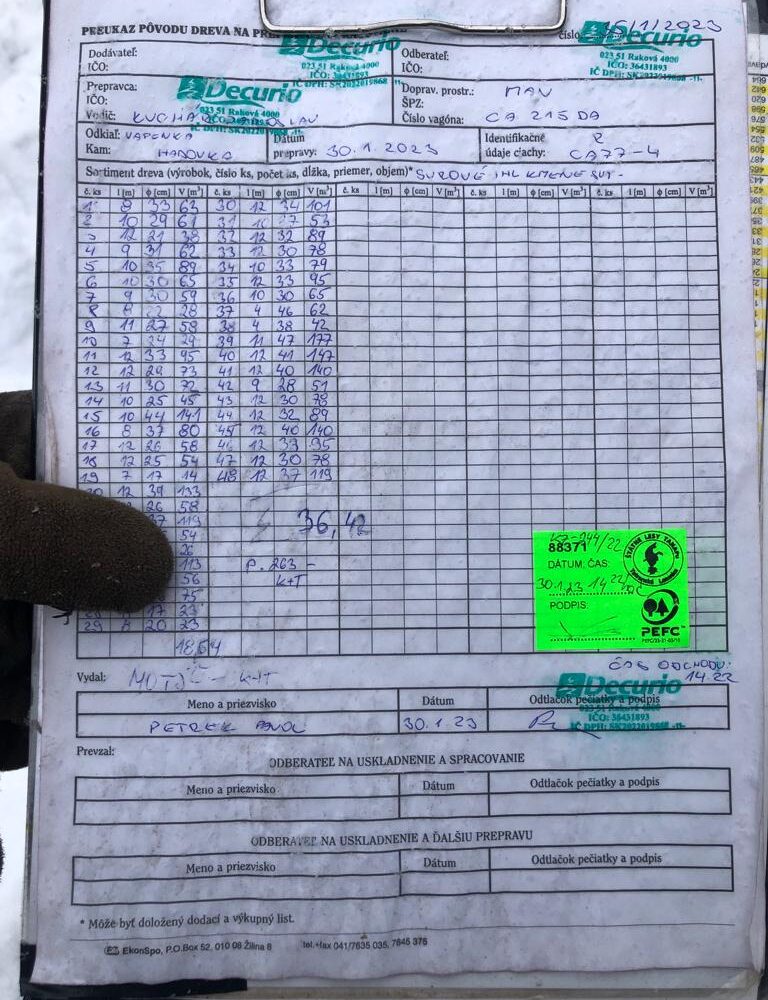 PREUKAZ PÔVODU DREVA NA
číslo 16/1/2023
Decurio
023 51 Raková 4000
IČO: 36431893
IČ DPH: SK2022019868 -11-
Decurio
023 51 Raková 4000
IČO: 36431893
IČ DPH: SK2022019868 -11-
Dodávateľ:
IČO:
Odberateľ:
IČO:
Prepravca:
IČO:
Vodič:
Decurio
023 51 Raková 4000
IČ DPH: SK2022019
Doprav. prostr.: MAN
ŠPZ:
Číslo vagóna: CA 215 DA
Odkiaľ: VAPENKA
Kam: HADOVKA
Dátum
prepravy: 30.1.2023
Identifikačné
údaje ciachy: CA77-4
Sortiment dreva (výrobok, číslo ks, počet ks, dĺžka, priemer, objem)* SUROVÉ IHL KMENE
č. ks l [m] ϕ [cm] V [m³] č. ks l [m] ϕ [cm] V [m³] č. ks l [m] ϕ [cm] V [m³] č. ks l [m] ϕ [cm] V [m³] č. ks l [m] ϕ [cm] V [m³]
1 8 33 63 30 12 34 101
2 10 29 61 31 27 53
3 12 21 38 32 12 32 89
4 9 31 62 33 12 30 78
5 10 35 89 34 10 33 79
6 10 30 65 35 12 33 95
7 9 30 59 36 10 30 65
8 8 22 28 37 4 46 62
9 11 27 58 38 4 38 42
10 7 24 29 39 11 47 177
11 12 33 95 40 12 41 147
12 12 29 73 41 12 40 140
13 11 30 72 42 9 28 51
14 10 25 45 43 12 30 78
15 10 44 141 44 12 32 89
16 8 37 80 45 12 40 140
17 12 26 58 46 12 33 95
18 12 25 54 47 12 30 78
19 7 17 14 48 12 37 119
20 12 39 133
26 58
37 119
54
26
113
56
75
17 23
29 8 20 23
18,64
36,42
P. 263 -
K+T
88371
DÁTUM, ČAS:
30.1.23 14 22
PODPIS:
ŠTÁTNE LESY TANAPu
PEFC™
ČAS ODCHODU:
14.22
Vydal: K+T
Meno a priezvisko Dátum Odtlačok pečiatky a podpis
PETREK PAVOL 30.1.23
Decurio
023 51 Raková 4000
IČO: 36431893
IČ DPH: SK2022019868 -11-
Prevzal:
ODBERATEĽ NA USKLADNENIE A SPRACOVANIE
Meno a priezvisko Dátum Odtlačok pečiatky a podpis
ODBERATEĽ NA USKLADNENIE A ĎALŠIU PREPRAVU
Meno a priezvisko Dátum Odtlačok pečiatky a podpis
* Môže byť doložený dodací a výkupný list.
EkonSpo, P.O.Box 52, 010 08 Žilina 8 tel.+fax 041/7635 035, 7645 375